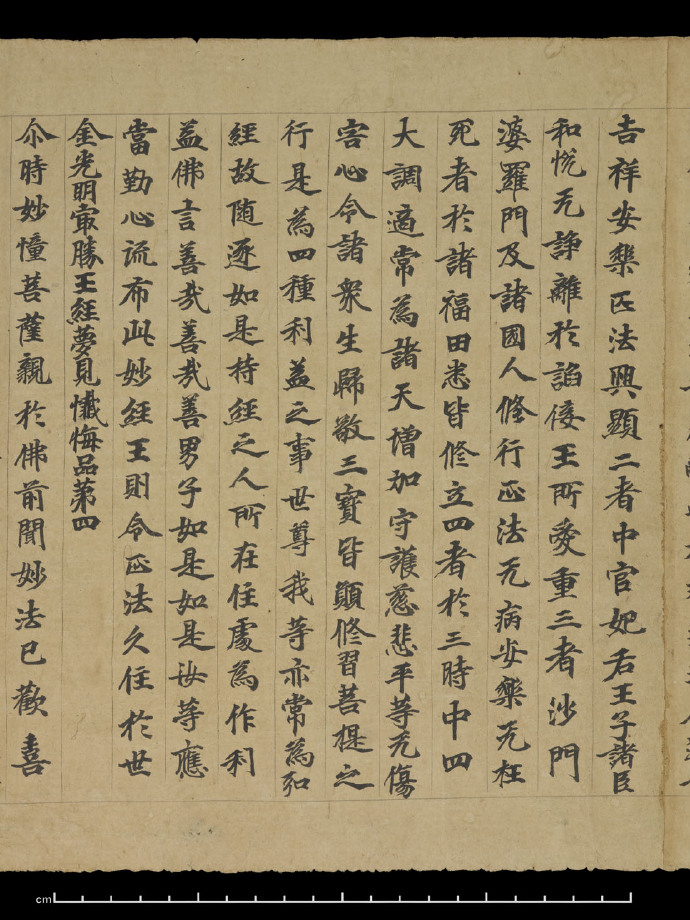 吉祥安樂正法興顯二者中宮妃后王子諸臣
和悅无諍離於諂侫王所愛重三者沙門
婆羅門及諸國人修行正法无病安樂无枉
死者於諸福田悉皆修立四者於三時中四
大調適常為諸天增加守護慈悲平等无傷
害心令諸衆生歸敬三寶皆願修習菩提之
行是為四種利益之事世尊我等亦常為弘
經故隨逐如是持經之人所在住處為作利
益佛言善哉善哉善男子如是如是汝等應
當勤心流布此妙經王則令正法久住於世
金光明㝡勝王經夢見懺悔品第四
尒時妙幢菩薩親於佛前聞妙法已歡喜